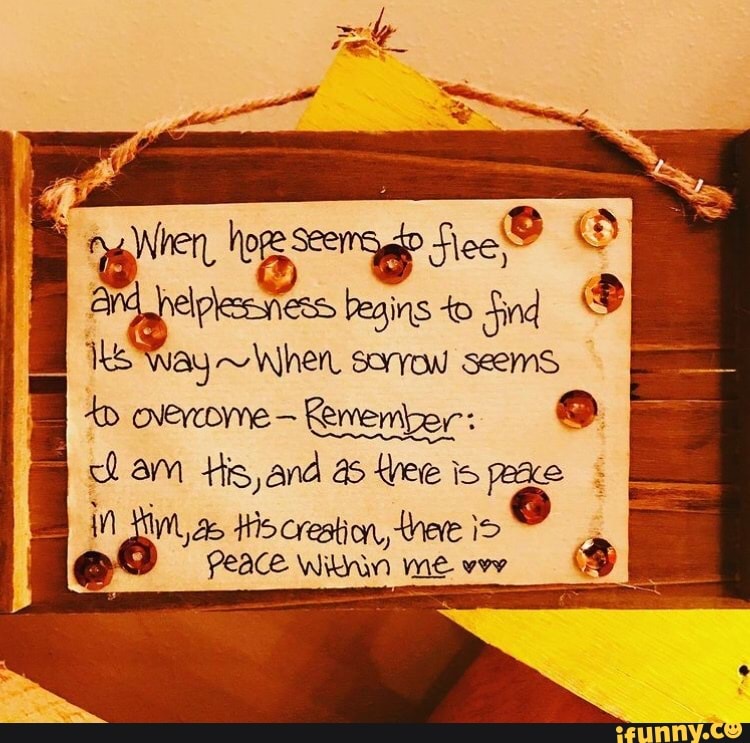 ~ When hope seems to flee,
and helplessness begins to find
it's way ~ When sorrow seems
to overcome - Remember:
I am His, and as there is peace
in Him, as His creation, there is
peace within me ♥♥♥
ifunny.co